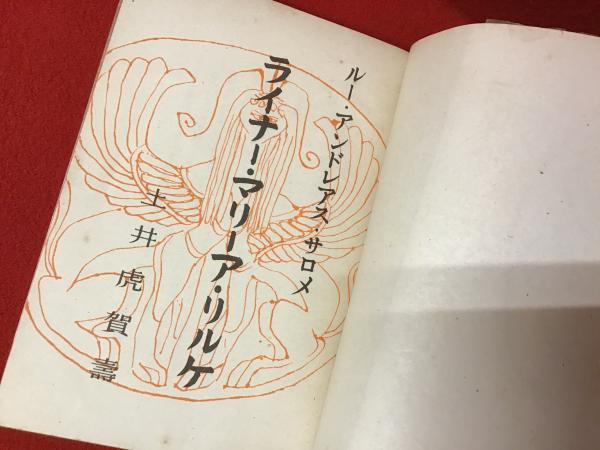 ルー・アンドレアス・サロメ
ライナー・マリーア・リルケ
土井虎賀壽